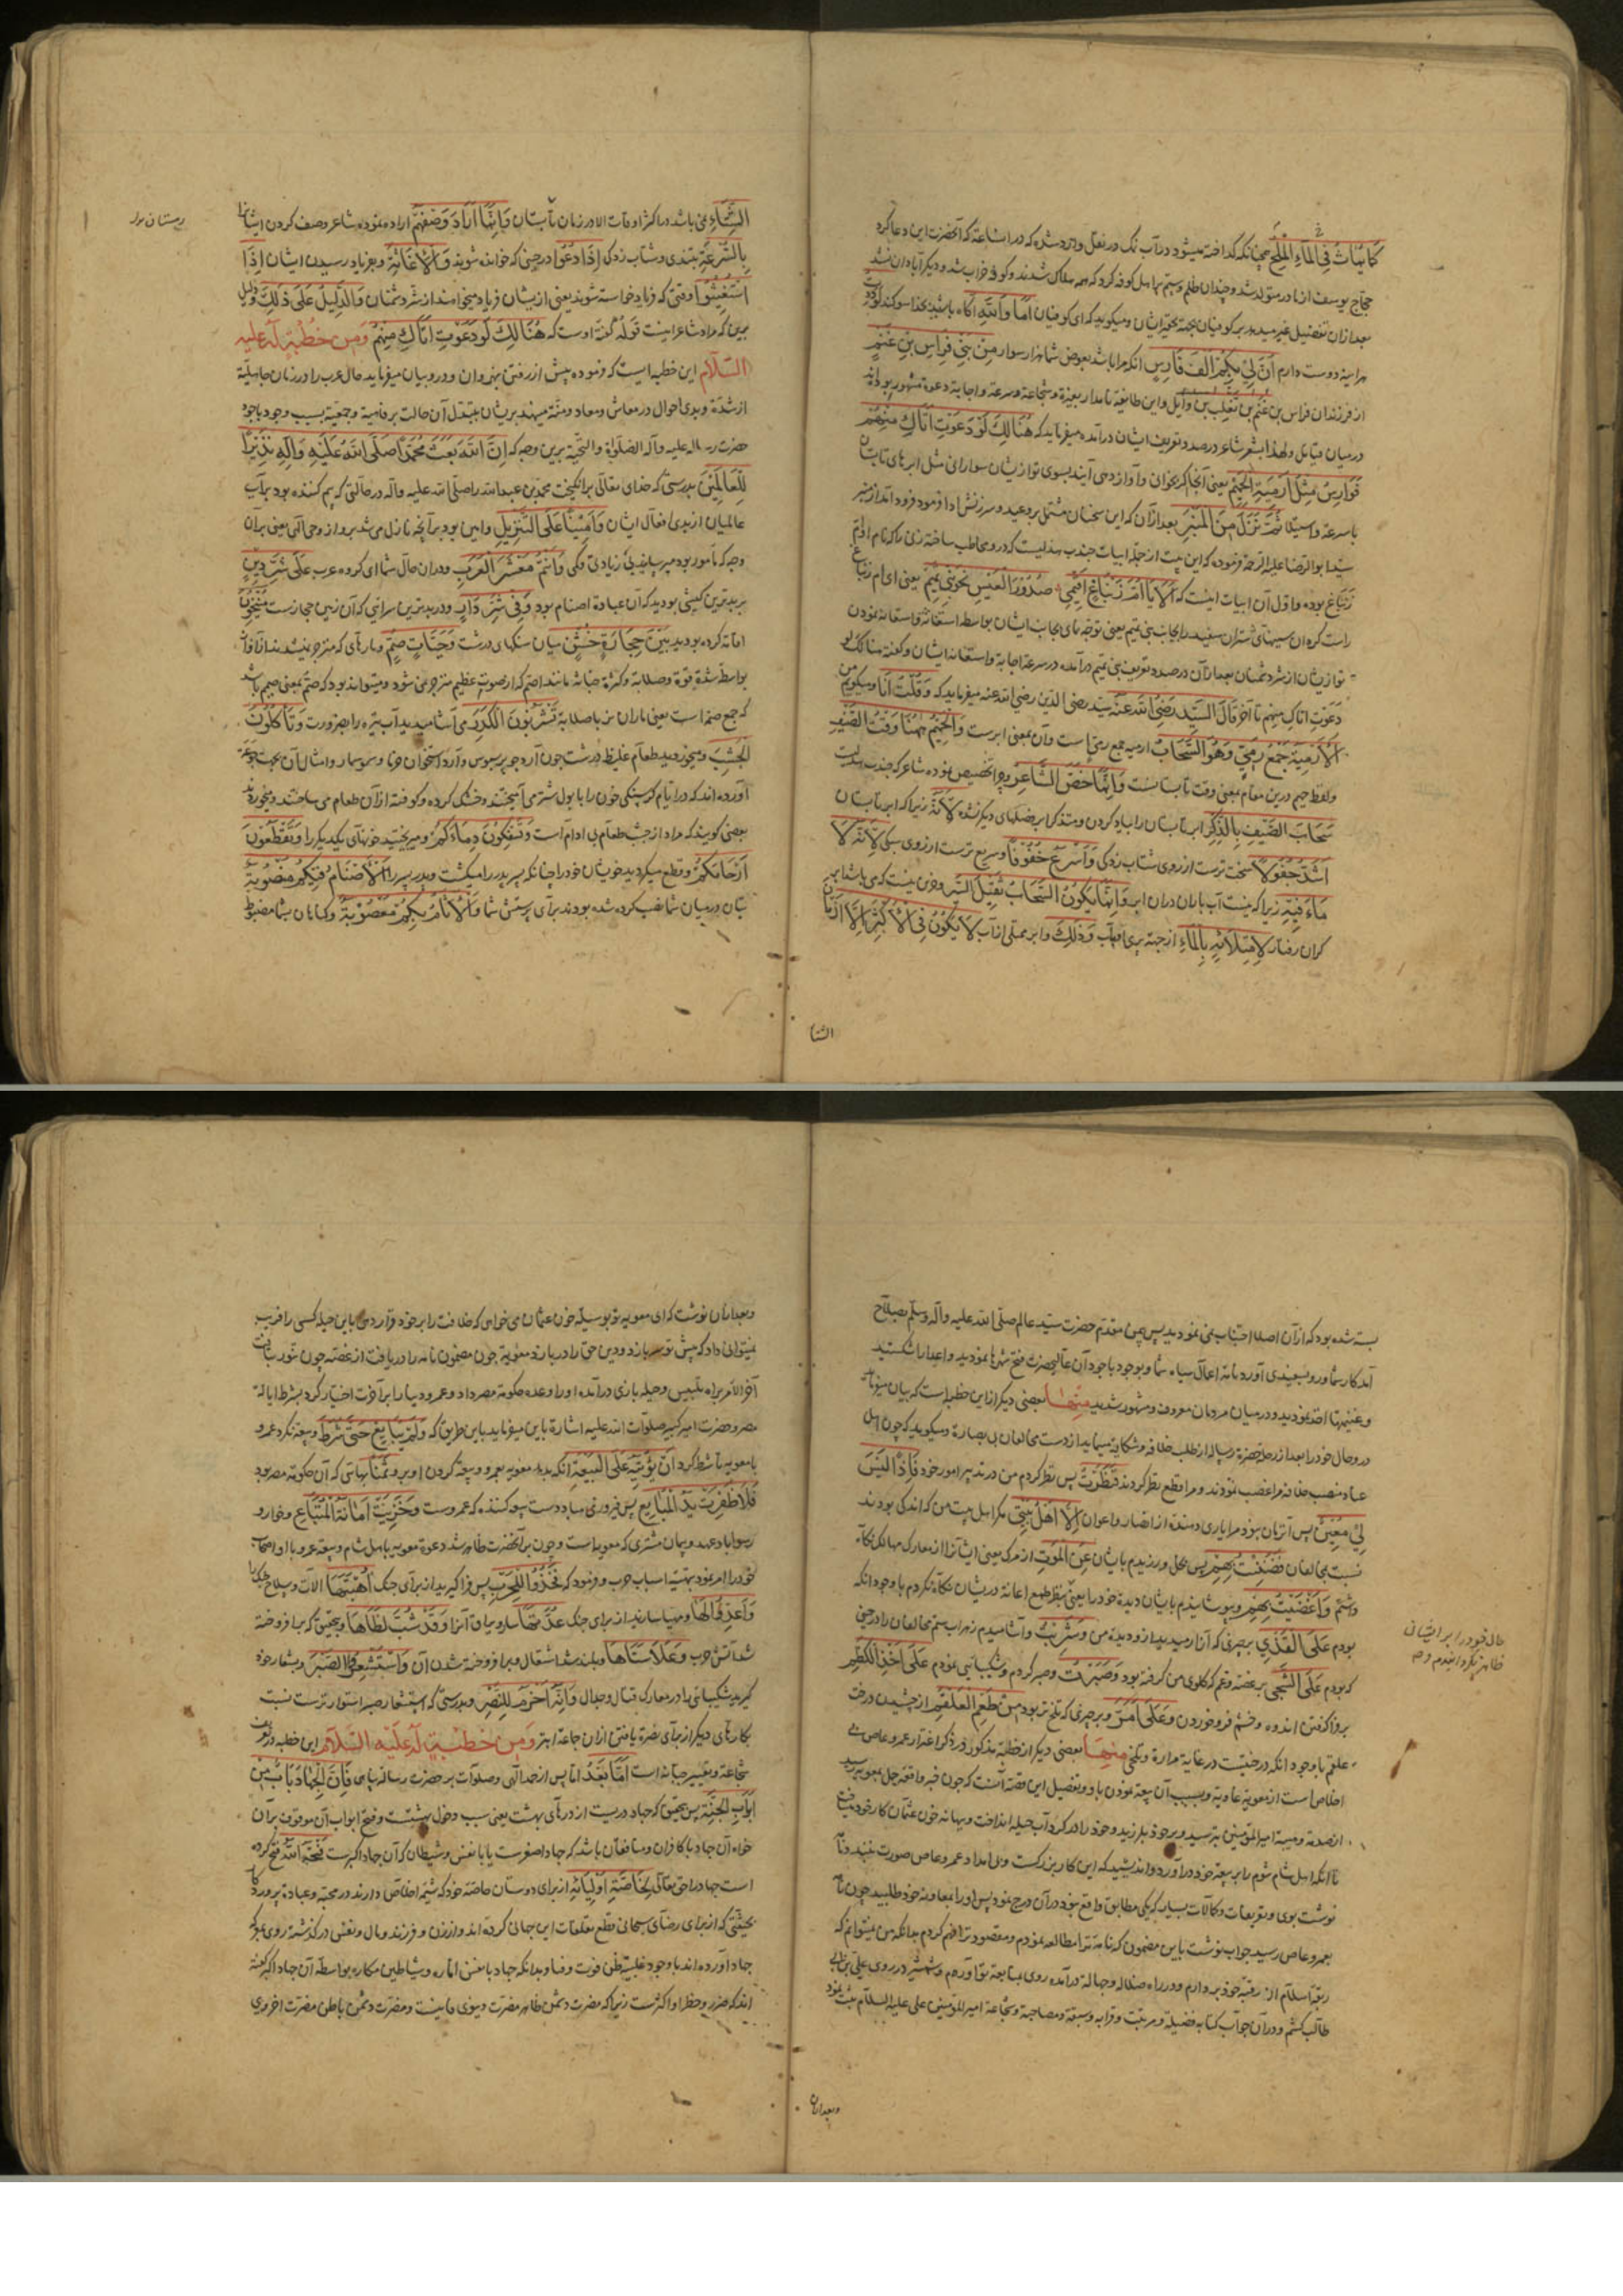 كَمَا يُمَاثُ فِي الْمَاءِ الْمِلْحُ چنانکه گداخته میشود در آب نمک و در نقل وارد شده که در آن ساعة که آنحضرت این دعا کرد
حجاج یوسف از مادر متولد شد و چندان ظلم و ستم باهل کوفه کرد که همه هلاک شدند و کوفه خراب شد و دیگر آبادان نشد
بعد از آن تفضیل غیر میدهد بر کوفیان بجهة تحقیر ایشان و میگوید که ای کوفیان أَمَا وَاللَّهِ آگاه باشید بخدا سوگند
هر آینه دوست دارم أَنَّ لِي بِكُمْ أَلْفَ فَارِسٍ آنکه مرا باشد بعوض شما هزار سوار مِنْ بَنِي فِرَاسِ بْنِ غَنْمٍ
از فرزندان فراس بن غنم بن تغلب بن وایل و این طایفه نامدار بعزة و شجاعة و سرعة و اجابة دعوة مشهور بوده‌اند
در میان قبایل و لهذا بشعر شاعر در صدد تعریف ایشان درآمده میفرماید که هُنَالِكَ لَوْ دَعَوْتَ أَتَاكَ مِنْهُمْ
فَوَارِسُ مِثْلُ أَرْمِيَةِ الْحَمِيمِ یعنی آنجا اگر بخوان و آواز دهی آیند بسوی تو از یشان سوارانی مثل ابرهای تابستان
با سرعة و استیلا ثُمَّ نَزَلَ مِنَ الْمِنْبَرِ بعد از آن که این سخنان مشتمل بر وعید و سرزنش ادا فرمود فرود آمد از منبر
سید ابو الرضا علیه الرحمة فرموده که این بیت از جمله ابیات جندب هذلیست که در و مخاطب ساخته زنی را که نام او ام
زنباع بوده و اول آن ابیات اینست که أَلَا يَا أُمَّ زِنْبَاعٍ أَقِيمِي صُدُورَ الْعِيسِ نَحْوَ بَنِي تَمِيمِ یعنی ای ام زنباع
راست گردان سینهای شتران سفید را بجانب بنی تمیم یعنی توجه نمای بجانب ایشان بواسطه استغاثة و استعانة نمودن
تو از یشان از شر دشمنان بعد از آن در صدد تعریف بنی تمیم درآمده در سرعة اجابة و استعانة ایشان و گفته هنالک لو
دَعَوْتَ أَتَاكَ مِنْهُمْ تا آخر قَالَ السَّيِّدُ رَضِيَ اللَّهُ عَنْهُ سید رضی الدین رضی الله عنه میفرماید که وَقُلْتُ أَنَا و میگویم من
الْأَرْمِيَةُ جَمْعُ رَمِيٍّ وَهُوَ السَّحَابُ ارمیه جمع رمی است و آن بمعنی ابرست وَالْحَمِيمُ هٰهُنَا وَقْتُ الصَّيْفِ
و لفظ حمیم درین مقام بمعنی وقت تابستانست وَإِنَّمَا خَصَّ الشَّاعِرُ و چرا تخصیص نموده شاعر که جندب هذلیست
سَحَابَ الصَّيْفِ بِالذِّكْرِ ابر تابستان را بیاد کردن و متذکر ابر فصلهای دیگر نشده لِأَنَّهُ زیرا که ابر تابستان
أَشَدُّ جُفُولًا سخت ترست از روی شتاب زدگی وَأَسْرَعُ خُفُوفًا و سریع ترست از روی سبکی لِأَنَّهُ لَا
مَاءَ فِيهِ زیرا که نیست آب باران در آن ابر وَإِنَّمَا يَكُونُ السَّحَابُ ثَقِيلَ السَّيْرِ و جز این نیست که می باشد ابر
گران رفتار لِامْتِلَائِهِ بِالْمَاءِ از جهة پری او بآب وَذٰلِكَ و ابر ممتلی از آب لَا يَكُونُ فِي الْأَكْثَرِ إِلَّا زَمَانَ
الشتا
الشِّتَاءِ نمی باشد در اکثر اوقات الا در زمان تابستان وَإِنَّمَا أَرَادَ وَصْفَهُمْ اراده نموده شاعر وصف کردن ایشانرا
زمستان
بِالسُّرْعَةِ بتندی و شتاب زدگی إِذَا دُعُوا در حینی که خوانده شوند وَالْإِغَاثَةِ و بفریاد رسیدن ایشان إِذَا
اسْتُغِيثُوا وقتی که فریاد خواسته شوند یعنی از یشان فریاد میخواهند از شر دشمنان وَالدَّلِيلُ عَلَى ذٰلِكَ و دلیل
برین که مراد شاعر اینست قَوْلُهُ گفته اوست که هُنَالِكَ لَوْ دَعَوْتَ أَتَاكَ مِنْهُمْ وَمِنْ خُطْبَةٍ لَهُ عَلَيْهِ
السَّلَامُ این خطبه ایست که فرموده پیش از رفتن بنهروان و درو بیان میفرماید حال عرب را در زمان جاهلیة
از شدة و بدی احوال در معاش و معاد و منة مینهد بریشان بتبدل آن حالت برفاهیة و جمعیة بسبب وجود باجود
حضرت رسالة علیه و آله الصلوة و التحیة برین وجه که إِنَّ اللَّهَ بَعَثَ مُحَمَّدًا صَلَّى اللَّهُ عَلَيْهِ وَآلِهِ نَذِيرًا
لِلْعَالَمِينَ بدرستی که خدای تعالی برانگیخت محمد بن عبد الله را صلی الله علیه و آله در حالتی که بیم کننده بود برای
عالمیان از بدی افعال ایشان وَأَمِينًا عَلَى التَّنْزِيلِ و امین بود بر آنچه نازل می شد برو از وحی الهی یعنی بر آن
وجه که مامور بود میرسانید بی زیادتی و کمی وَأَنْتُمْ مَعْشَرَ الْعَرَبِ و در آن حال شما ای گروه عرب عَلَى شَرِّ دِينٍ
بر بدترین کیشی بودید که آن عبادة اصنام بود وَفِي شَرِّ دَارٍ و در بدترین سرائی که آن زمین حجازست مُنِيخُونَ
اقامة کرده بودید بَيْنَ حِجَارَةٍ خُشْنٍ میان سنگهای درشت وَحَيَّاتٍ صُمٍّ و مارهای که منزجر نمیشدند از آفات
بواسطه شدة قوة و صلابة و کثرة خباثة مانند اصم که از صوت عظیم منزجر نمی شود و میتواند بود که صم بمعنی صمیم باشد
که جمع صما است یعنی ماران نر با صلابة تَشْرَبُونَ الْكَدِرَ می آشامیدید آب تیره را بضرورت وَتَأْكُلُونَ
الْجَشِبَ و میخوردید طعام غلیظ درشت چون آرد جو پر سبوس و آرد استخوان خرما و سوسمار و امثال آن بجهت مجاعة
آورده اند که در ایام گرسنگی خون را با بول شتر می آمیختند و خشک کرده و کوفته از آن طعام می ساختند و میخوردند
بعضی گویند که مراد از جشب طعام بی ادام است وَتَسْفِكُونَ دِمَاءَكُمْ و میریختید خونهای یکدیگر را وَتَقْطَعُونَ
أَرْحَامَكُمْ و قطع میکردید خویشان خود را چنانکه پسر پدر را میکشت و پدر پسر را الْأَصْنَامُ فِيكُمْ مَنْصُوبَةٌ
بتان در میان شما نصب کرده شده بودند برای پرستش شما وَالْآثَامُ بِكُمْ مَعْصُوبَةٌ و گناهان بشما مضبوط
بسته شده بود که از آن اصلا اجتناب نمی نمودید پس بیمن مقدم حضرت سید عالم صلی الله علیه و آله و سلم بصلاح
آمد کار شما و رو بسفیدی آورد نامه اعمال سیاه شما و بوجود باجود آن عالیحضرت فتح شهرها نمودید و اعدا را شکستید
و غنیمتها اخذ نمودید و در میان مردمان معروف و مشهور شدید مِنْهَا بعضی دیگر از این خطبه است که بیان میفرماید
درو حال خود را بعد از رحلة حضرة رسالة از طلب خلافة و شکایة مینماید از دست مخالفان بی بصارة و میگوید که چون اهل
عناد منصب خلافة مرا غصب نمودند و مرا قطع نظر کردند فَنَظَرْتُ پس نظر کردم من در تدبیر امور خود فَإِذَا لَيْسَ
لِي مُعِينٌ پس آن زمان نبود مرا یاری دهندة از انصار و اعوان إِلَّا أَهْلُ بَيْتِي مگر اهل بیت من که اندکی بودند
نسبت بمخالفان فَضَنِنْتُ بِهِمْ پس بخل ورزیدم بایشان عَنِ الْمَوْتِ از مرگ یعنی ایشانرا از معارک مهالک نگاه
داشتم وَأَغْضَيْتُ و بپوشانیدم بایشان دیدة خود را یعنی بنظر طمع اعانة دریشان نگاه نکردم با وجود آنکه
حال خود را بر ایشان
ظاهر نگردانیدم
بودم عَلَى الْقَذَى بر چیزی که آزار رسیده بود از و دیدة من وَشَرِبْتُ و آشامیدم زهراب ستم مخالفان را در حینی
که بودم عَلَى الشَّجَى بر غصه و غم که گلوی من گرفته بود وَصَبَرْتُ و صبر کردم و شکیبائی نمودم عَلَى أَخْذِ الْكَظْمِ
بر واگرفتن اندوه و خشم فرو خوردن وَعَلَى أَمَرَّ و بر چیزی که تلخ تر بود مِنْ طَعْمِ الْعَلْقَمِ از چشیدن درخت
علقم با وجود آنکه درختیست در غایة مرارة و تلخی مِنْهَا بعضی دیگر از خطبه مذکور در ذکر اغترار عمرو عاص بی
اخلاص است از معویة غاویة و سبب آن بیعة نمودن با و و تفصیل این قصه آنست که چون خبر واقعه جمل بمعویه رسید
از صدمة و هیبة امیر المؤمنین بترسید و بر خود بلرزید و خود را در گرداب حیله انداخت و بهانه خون عثمان کار خود ساخت
تا آنکه اهل شام شوم را بر بیعة خود درآورد و اندیشید که این کار بزرگست و بی امداد عمرو عاص صورت نبندد نامه
نوشت بوی و تعریفات و کمالات بسیار که یکی مطابق واقع نبود در آن درج نمود پس او را بمعاونة خود طلبید چون نامه
بعمرو عاص رسید جواب نوشت باین مضمون که نامه ترا مطالعه نمودم و مقصود ترا فهم کردم بدانکه من نمیتوانم که
ربقة اسلام از رقبة خود بردارم و در راه ضلالة و جهالة درآمده روی بمتابعة تو آورم و شمشیر در روی علی بن ابی
طالب کشم و در آن جواب کتابه فضیلة و مرتبت و قرابه و سبقة و مصاحبة و شجاعة امیر المؤمنین علی علیه السلام ثبت نمود
و بعد از آن
و بعد از آن نوشت که ای معویه تو بوسیله خون عثمان می خواهی که خلافت را بر خود قرار دهی باین حیله کسی را فریب
نمیتوانی داد که پیش تو سر ببازد و دین حق را در بازد معویه چون مضمون نامه را دریافت از غصه چون مور بتافت
آخر الامر براه تلبیس و حیله بازی درآمده او را وعده حکومة مصر داد و عمرو دنیا را بر آخرت اختیار کرد بشرط ایالة
مصر و حضرت امیر کبیر صلوات الله علیه اشارة باین میفرماید باین طریق که وَلَمْ يُبَايِعْ حَتَّى شَرَطَ و بیعة نکرد عمرو
با معویه تا شرط کرد أَنْ يُؤْتِيَهُ عَلَى الْبَيْعَةِ آنکه بدهد معویه بعمرو و بیعة کردن او برو ثَمَنًا بهائی که آن حکومة مصر بود
فَلَا ظَفِرَتْ يَدُ الْمُبَايِعِ پس فیروزی مباد دست بیع کننده که عمروست وَخَزِيَتْ أَمَانَةُ الْمُبْتَاعِ و خوار و
رسوا باد عهد و پیمان مشتری که معویه است و چون بر آنحضرت ظاهر شد دعوة معویه باهل شام و بیعة عمرو با او اصحاب
خود را امر نمود بتهیة اسباب حرب و فرمود که فَخُذُوا لِلْحَرْبِ پس فرا گیرید از برای جنک أُهْبَتَهَا آلات و سلاح جنک را
وَأَعِدُّوا لَهَا و مهیا سازید از برای جنک عُدَّتَهَا ساز و یراق آنرا وَقَدْ شَبَّ لَظَاهَا و بتحقیق که برافروخته
شد آتش حرب وَعَلَا سَنَاهَا و بلند شد اشتعال و برافروخته شدن آن وَاسْتَشْعِرُوا الصَّبْرَ و شعار خود
گیرید شکیبائی را در معارک قتال و جدال فَإِنَّهُ أَحْزَمُ لِلنَّصْرِ و بدرستی که استشعار صبر استوارترست نسبت
بکارهای دیگر از برای نصرة یافتن از آن جماعة ابتر وَمِنْ خُطْبَةٍ لَهُ عَلَيْهِ السَّلَامُ این خطبه در تعریف
شجاعة و تعییر جبانه است أَمَّا بَعْدُ اما پس از حمد الهی و صلوات بر حضرت رسالة پناهی فَإِنَّ الْجِهَادَ بَابٌ مِنْ
أَبْوَابِ الْجَنَّةِ پس بتحقیق که جهاد دریست از درهای بهشت یعنی سبب دخول بهشتست و فتح ابواب آن موقوف بر آن
خواه آن جهاد با کافران و منافقان باشد که جهاد اصغرست یا با نفس و شیطان که آن جهاد اکبرست فَتَحَهُ اللَّهُ فتح کرده
است جهاد را حق تعالی لِخَاصَّةِ أَوْلِيَائِهِ از برای دوستان خاصة خود که شیمة اخلاص دارند در محبة و عبادة پروردگار
بحیثیتی که از برای رضای سبحانی قطع تعلقات این جهانی کرده اند و از زن و فرزند و مال و نفس در گذشته روی
بجهاد آورده اند با وجود غلبة ظن فوت و فنا و بدانکه جهاد با نفس اماره و شیاطین مکاره بواسطه آن جهاد اکبر گفته
اند که ضرر و خطر او اکثرست زیرا که مضرت دشمن ظاهر مضرت دنیوی فانیست و مضرت دشمن باطن مضرت اخروی